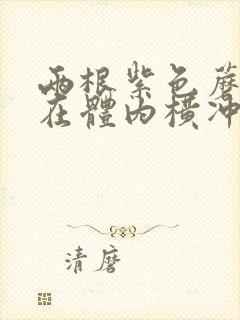 两根紫色蘑
在體内横冲
清磨